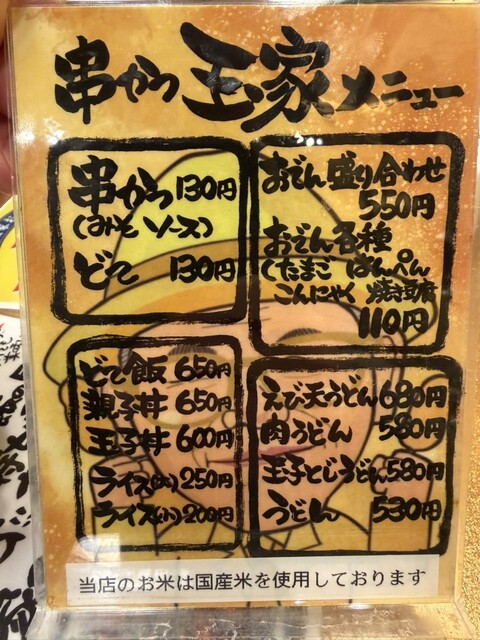 串かつ 玉家 メニュー
串かつ 130円
(みそ ソース)
どて 130円
おでん盛り合わせ
550円
おでん各種
(たまご はんぺん
こんにゃく 焼き豆腐
110円
どて飯 650円
親子丼 650円
玉子丼 600円
ライス(大) 250円
ライス(小) 200円
えび天うどん 680円
肉うどん 580円
玉子とじうどん 580円
うどん 530円
当店のお米は国産米を使用しております